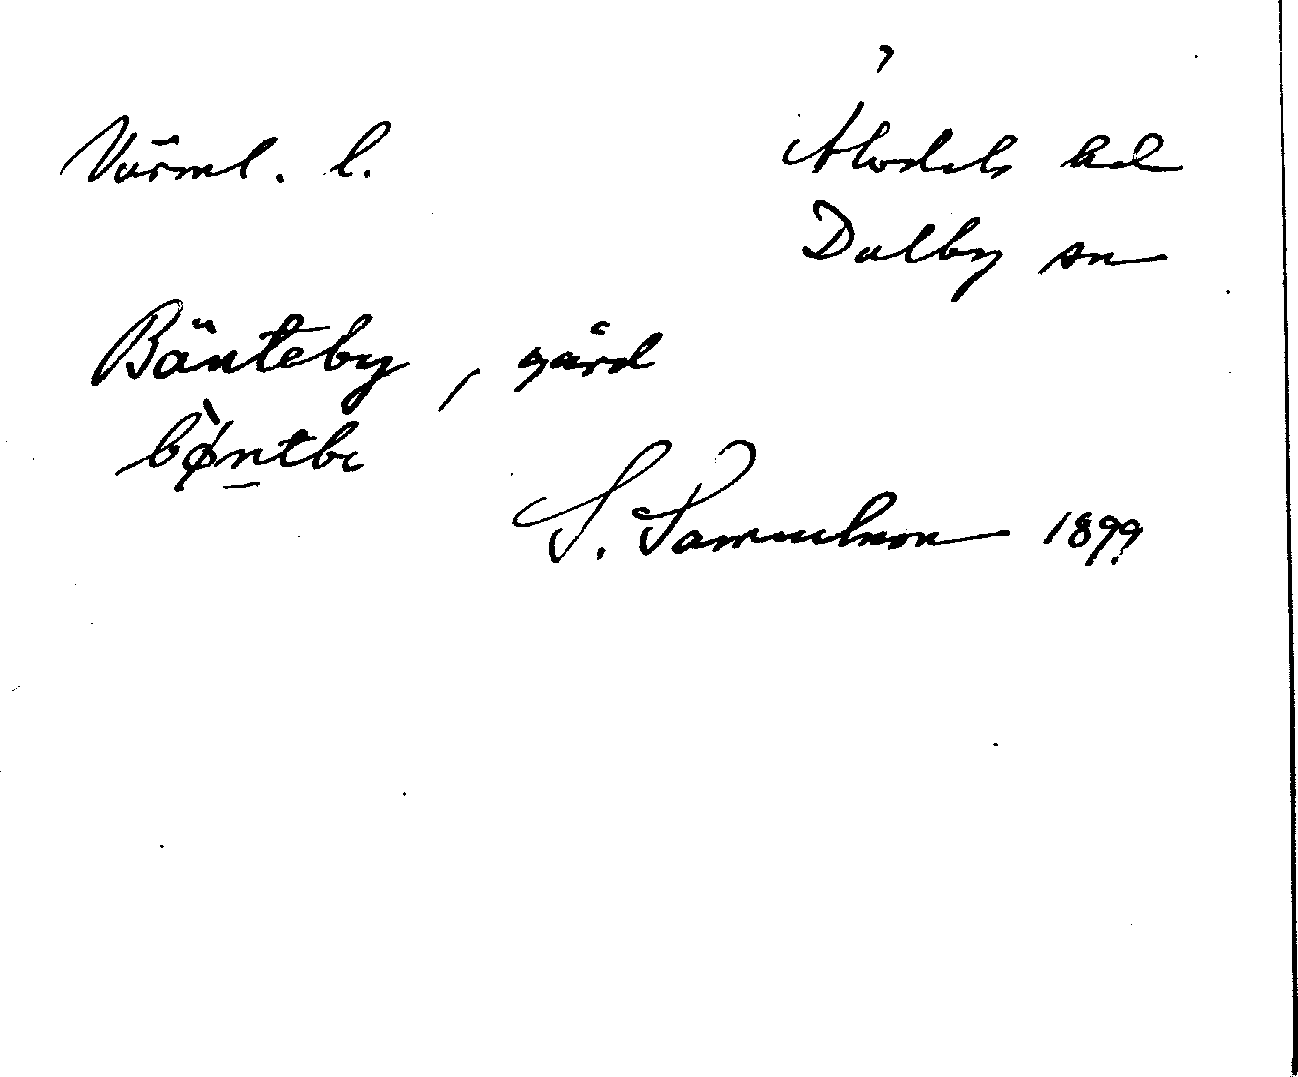 Värml. l.
Älvdals hd
Dalby sn
Bänteby, gård
bø̀ntbı
S. Samuelsson 1899